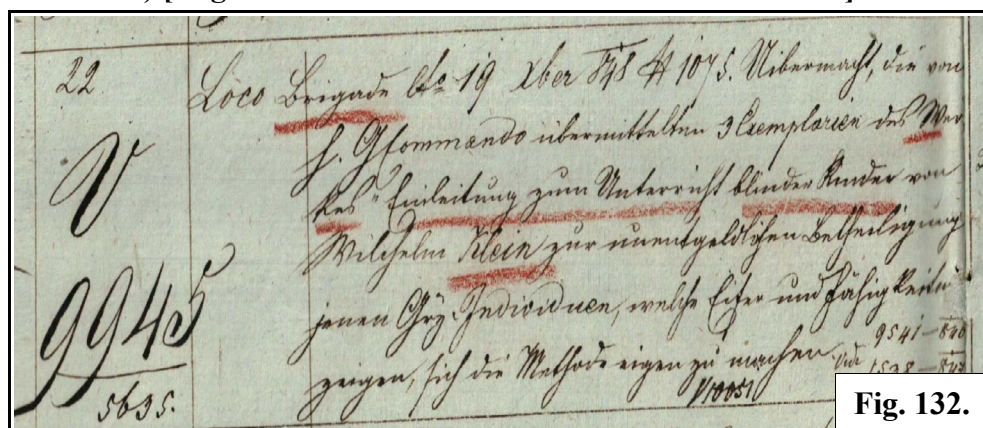 22
Loco Brigade dto 19 xber 848 # 1075. Uibermacht, die von
h. GCommando übermittelten 3 Exemplarien des Wer
kes "Einleitung zum Unterricht blinder Kinder von
Wilchelm Klein zur unentgeldlichen Betheiligung
jenen Individuen, welche Eifer und Fähigkeiten
9945
zeigen, sich die Methode eigen zu machen
9541-848
5635.
V10051
Fig. 132.